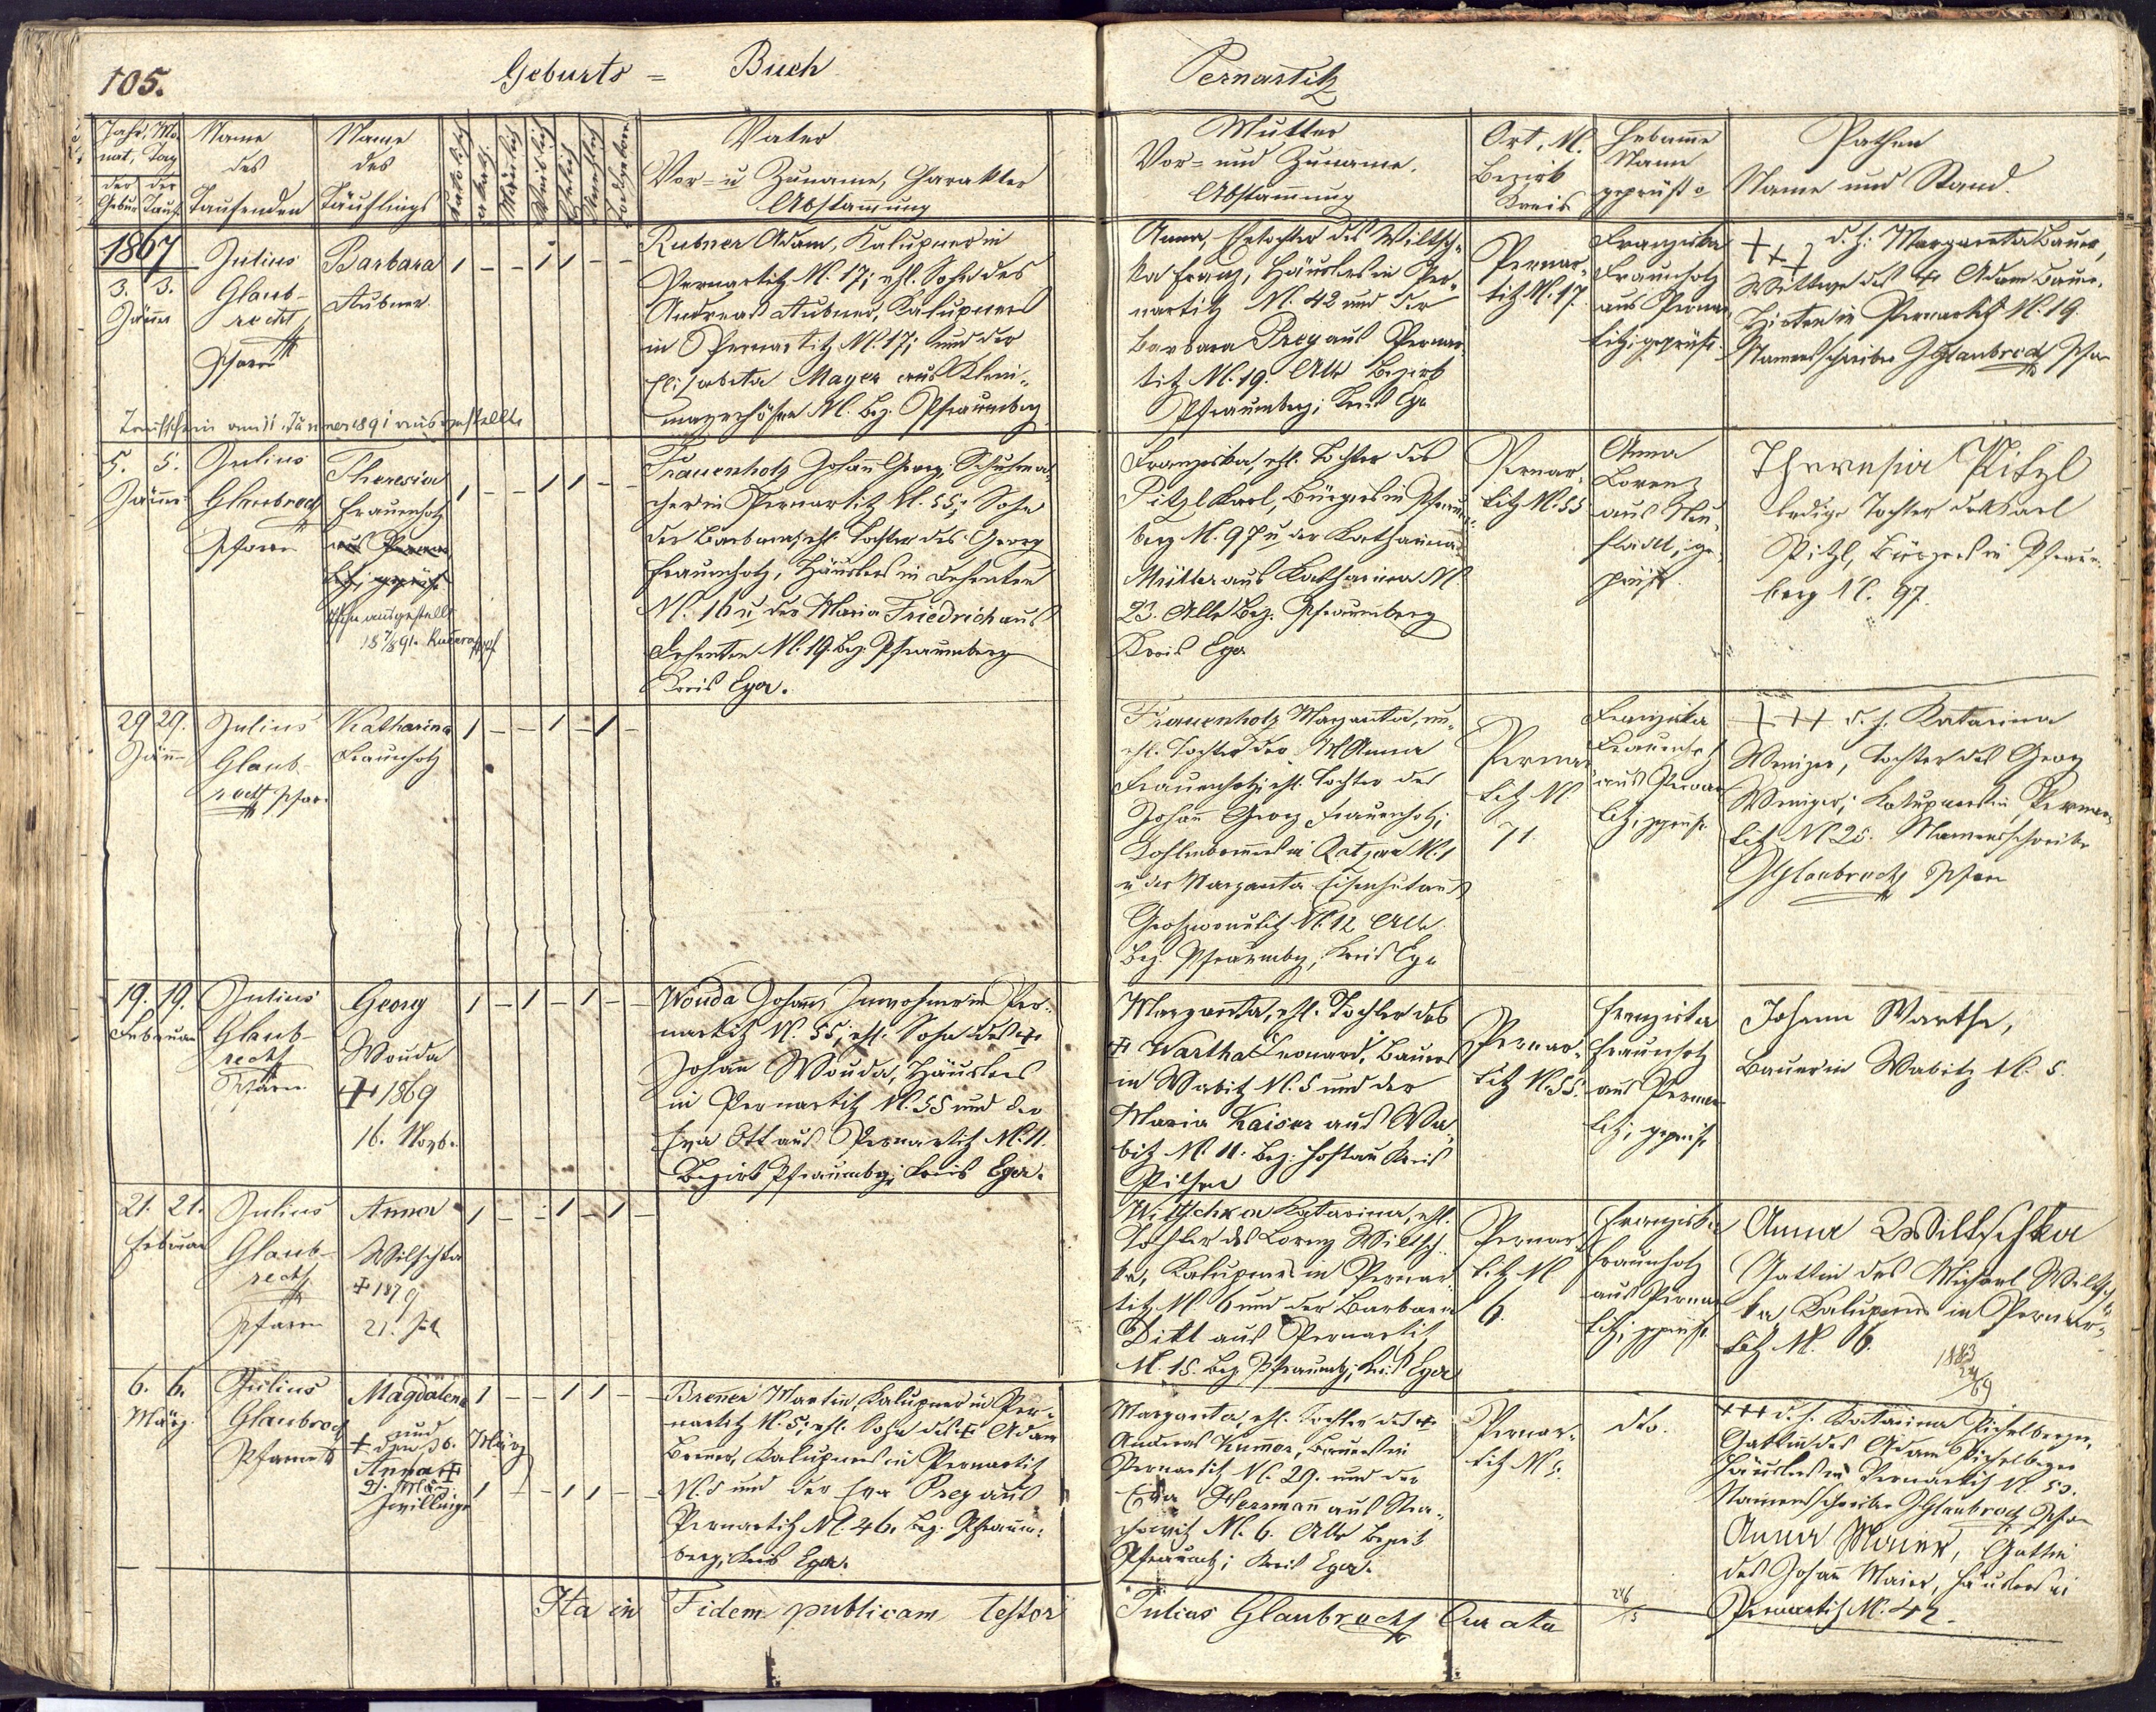 105.
Geburts = Buch
Pernartitz
Jahr, Mo-
nat, Tag
der der
Geburt Tauf
Name
des
Taufenden
Name
des
Täuflings
Katolisch
akath.
Mänlich
Weiblich
Ehelich
Unehlich
Todtgeborn
Vater
Vor= u Zuname, Charakter
Abstamung
Mutter
Vor= und Zuname.
Abstamung
Ort, N.
Bezirk
Kreis
Hebame
Name
geprüft o
Pathen
Name und Stand.
1867
3. 3.
Jäner
Julius
Glaub-
recht
Pfarrer
Barbara
Rubner
1 – – 1 1 – –
Rubner Adam, Kalupner in
Pernartitz N. 17; ehl. Sohn des
Andreas Rubner, Kalupners
in Pernartitz N. 17; und der
Elisabeta Mayer aus Klein-
mayerhöfen N. Bez. Pfraumberg
Anna, Ehetochter des Wiltsch-
ka Franz, Häuslers in Per-
nartitz N. 42 und der
Barbara Preg aus Pernar-
titz N. 19. Alle Bezirk
Pfraumberg; Kreis Eger
Pernar-
titz N. 17.
Franziska
Fraunholz
aus Pernar
titz; geprüft.
+++ d. h: Margareta Bauer,
Wittwe des + Adam Bauer,
Hirten in Pernartitz N. 19.
Namensschreiber J Glaubrecht Pfar
Taufschein am 11. Jänner 1891 ausgestellt.
5. 5.
Jäner
Julius
Glaubrecht
Pfarrer
Theresia
Frauenholz
aus Pernar
titz; geprüft
ausgestellt
18 7/8 91. Kučera
1 – – 1 1 – –
Frauenholz Johann Georg, Schuhma-
cher in Pernartitz N. 55; Sohn
der Barbara, ehl. Tochter des Georg
Frauenholz, Häuslers in Dehenten
N. 16 u. der Maria Friedrich aus
Dehenten N. 19. Bez. Pfraumberg
Kreis Eger.
Franziska, ehl. Tochter des
Pitzl Karl, Bürgers in Pfraum-
berg N. 97 u. der Katharina
Müller aus Katharina N.
23. Alle Bez. Pfraumberg
Kreis Eger
Pernar-
titz N. 55
Anna
Lorenz
aus Neu-
stadtl; ge-
prüft.
Theresia Pitzl
ledige Tochter des Karl
Pitzl, Bürgers in Pfraum-
berg N. 97.
29 29.
Jän
Julius
Glaub-
recht Pfar
Katharina
Fraunholz
1 – – 1 – 1 –
Frauenholz Margareta, un-
ehl. Tochter der Anna
Frauenholz, ehl. Tochter des
Johann Georg Frauenholz;
Kohlenbrenners in N. 1
u der Margareta Eisenhut aus
N. 12 Alle
Bez. Pfraumbg; Kreis Eger
Pernar
titz N.
71.
Franziska
Fraunholz
aus Pernar
titz, geprüft.
+++ d. h. Katarina
Weniger, Tochter des Georg
Weniger; Kalupners in Pernar-
titz N 25. Namensschreiber
J Glaubrecht Pfarr
19. 19.
Februar
Julius
Glaub-
recht
Pfarrer
Georg
Wouda
+ 1869
16. Novb.
1 – 1 – 1 – –
Wouda Johann, Inwohner in Per-
nartitz N. 55; ehl. Sohn des +
Johann Wouda, Häuslers
in Pernartitz N. 55 und der
Eva Ott aus Pernartitz N. 11.
Bezirk Pfraumbg; Kreis Eger.
Margareta, ehl. Tochter des
+ Wartha Leonard, Bauers
in Wabitz N. 5 und der
Maria Kaiser aus Wa-
bitz N. 11. Bez: Hostau Kreis
Pilsen
Pernar-
titz N. 55.
Franziska
Fraunholz
aus Pernar
titz; geprüft
Johann Wartha,
Bauer in Wabitz N. 5.
21. 21.
Februar
Julius
Glaub-
recht
Pfarrer
Anna
Wilschka
+ 1879
21. Juli
1 – – 1 – 1 –
Wiltschka Katarina, ehl.
Tochter des Lorenz Wiltsch-
ka, Kalupners in Pernar
titz N. 6 und der Barbara
Dill aus Pernartitz
N. 15. Bez. Pfraumbg; Kreis Eger
Pernar
titz N
6.
Franziska
Fraunholz
aus Pernar
titz; geprüft.
Anna Wiltschka
Gattin des Michael Wiltsch-
ka Kalupners in Pernar-
titz N. 6.
1883
24/9
6. 6.
März.
Julius
Glaubrecht
Pfarrer
Magdalena
und
+ den 26. März
Anna +
21. März
Zwillinge
1 – – 1 1 – –
1 – – 1 1 – –
Brener Martin, Kalupner in Per-
nartitz N. 5; ehl. Sohn des + Adam
Brener, Kalupners in Pernartitz
N. 5 und der Eva Preg aus
Pernartitz N. 46, Bez. Pfraum-
berg; Kreis Eger.
Margareta, ehl. Tochter des +
Andreas Kumer, Bauers in
Pernartitz N. 29. und der
Eva Herrmann aus
N. 6. Alle Bezirk
Pfraumbg; Kreis Eger.
Pernar-
titz N 5.
dto.
+++ d. h. Katarina Pichelberger,
Gattin des Adam Pichelberger
Häuslers in Pernartitz N. 53.
Namensschreiber J Glaubrecht Pfar
Anna Maier, Gattin
des Johann Maier, Häuslers in
Pernartitz N. 42.
Ita in Fidem publicam testor
Julius Glaubrecht Curatus